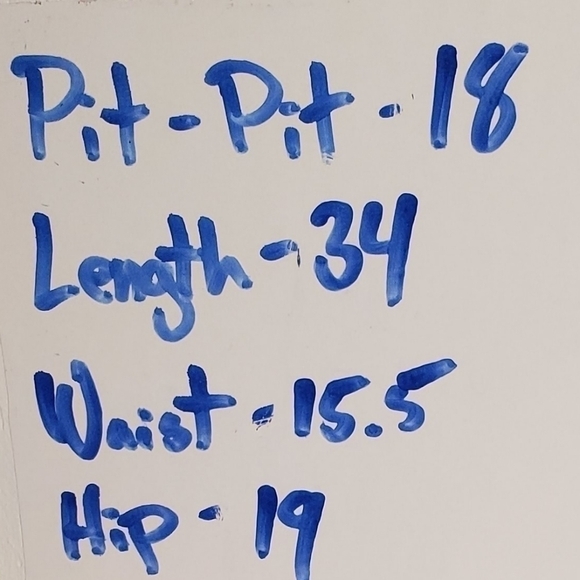 Pit - Pit - 18
Length - 34
Waist - 15.5
Hip - 19